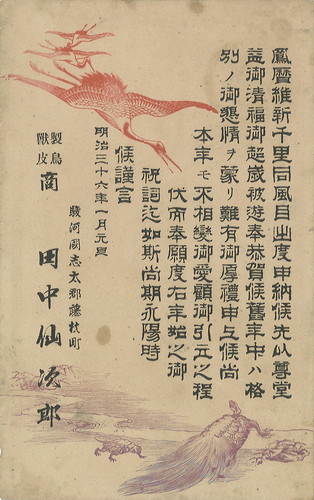 鳳暦維新千里同風目出度申納候先以尊堂
益御清福御超歳被遊奉恭賀候舊年中ハ格
別ノ御懇情ヲ蒙リ難有御厚禮申上候尚
本年モ不相變御愛顧御引立之程
伏而奉願度右年始之御
祝詞迄如斯尚期永陽時
候謹言
明治三十六年一月元旦
駿河國志太郡藤枝町
製鳥獸皮商 田中仙次郎